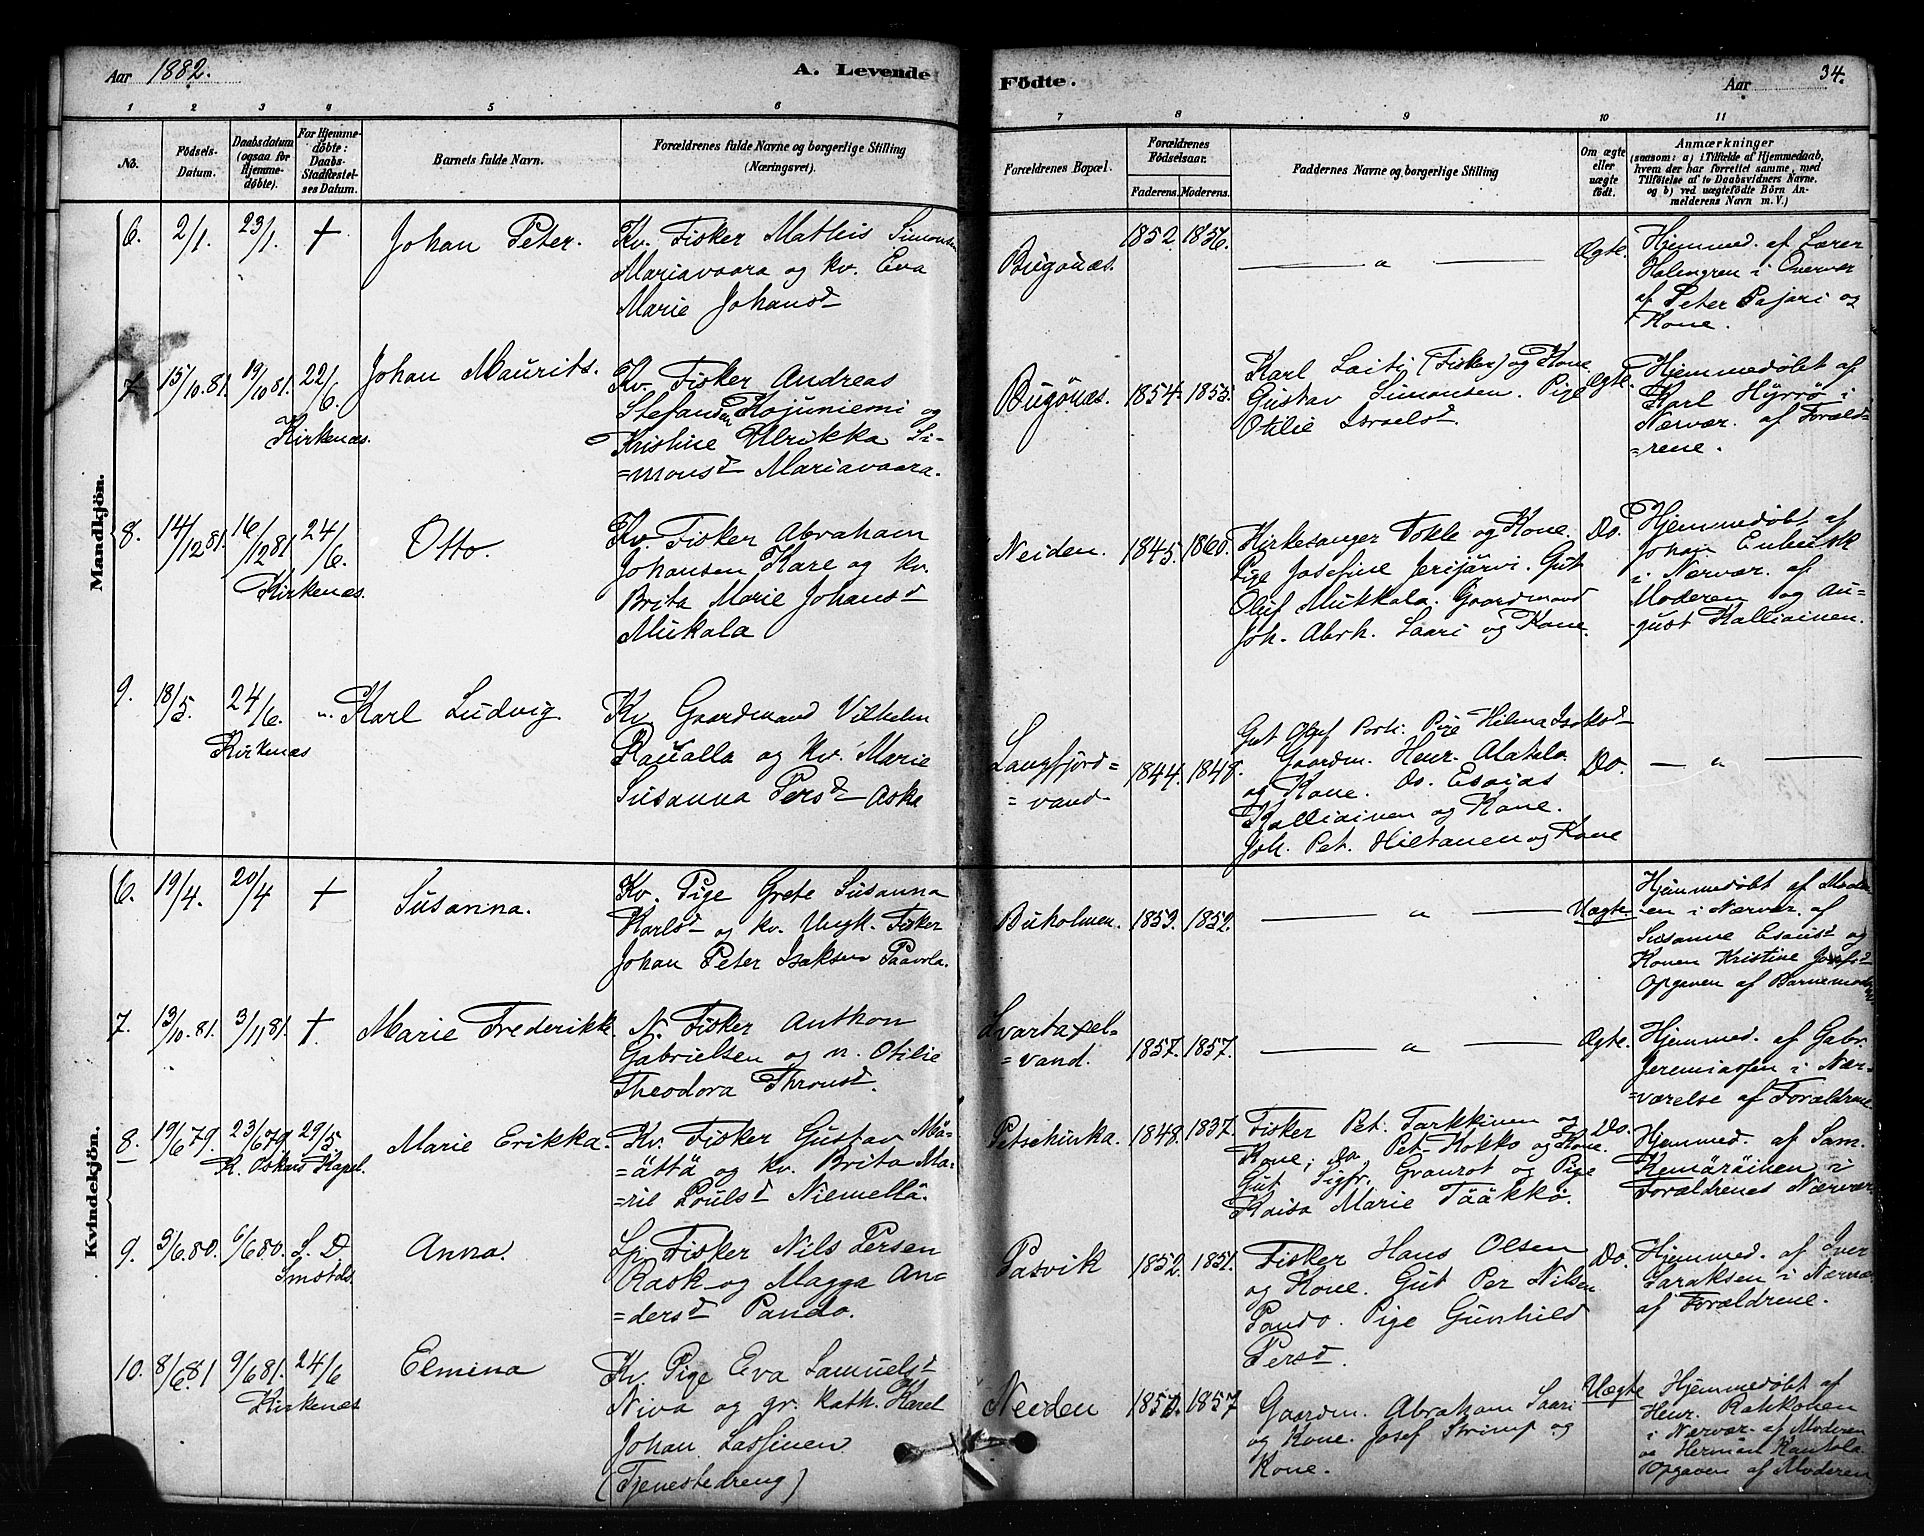 Aar 1882.
A. Levende Födte.
Aar
34.
1 2 3 4 5 6 7 8 9 10 11
No.
Födsels-
Datum.
Daabsdatum
(ogsaa for
Hjemme-
döbte).
For Hjemme-
döbte:
Daabs-
Stadfæstel-
ses Datum.
Barnets fulde Navn.
Forældrenes fulde Navne og borgerlige Stilling
(Næringsvei).
Forældrenes Bopæl.
Forældrenes
Födselsaar.
Faderens. Moderens.
Faddernes Navne og borgerlige Stilling
Om ægte
eller
uægte
födt.
Anmærkninger
(saasom: a) i Tilfælde af Hjemmedaab,
hvem der har forrettet samme, med
Tilföielse af to Daabsvidners Navne,
og b) ved uægtefödte Börn An-
melderens Navn m. V.)
Mandkjön.
6. 2/1. 23/1. †
Johan Peter.
Kv. Fisker Mathis Simonsen
Mariavaara og kv. Eva
Marie Johansd
Bugönæs.
1852. 1856.
— " —
Ægte.
Hjemmed. af Lærer
Holmgren i Overvær
af Peter Pajari og
Kone.
7. 15/10.81. 19/10 81. 22/6.
Kirkenæs.
Johan Maurits.
Kv. Fisker Andreas
Stefansen Kojuniemi og
Kristine Ulrikka Si-
=monsd Mariavaara.
Bugönæs.
1854. 1855.
Karl Laiti (Fisker) og Kone
Gustav Simonsen. Pige
Otilie Israelsd
Ægte.
Hjemmedöbt af
Karl Hyrrö i
Nærvær. af Foræld-
=rene.
8. 14/12 81. 16/12 81. 24/6.
Kirkenæs.
Otto.
Kv. Fisker Abraham
Johansen Kare og kv.
Brita Marie Johansd
Mukala
Neiden.
1845. 1860.
Kirkesanger Tokle og Kone.
Pige Josefine Jerijärvi. Gut
Oluf Mukkala. Gaardmand
Joh. Abrh. Saari og Kone.
Do.
Hjemmedöbt af
Johan
i Nærvær. af
Moderen og Au-
-gust Kalliainen.
9. 18/5. 24/6. "
Kirkenæs
Karl Ludvig
Kv. Gaardmand Vilhelm
Raualla og kv. Marie
Susanna Persd Aska
Langfjord=
=vand
1844. 1848.
Gut Olef Porti. Pige Hilma Isaksd
Gaardm. Henr. Alatalo
og Kone. Do. Esaias
Kalliainen og Kone.
Joh. Pet. Hietanen og Kone
Do.
— " —
Kvindekjön.
6. 19/4. 20/4 †
Susanna.
Kv. Pige Grete Susanna
Karlsd og kv. Ungk. Fisker
Johan Peter Isaksen Paavola.
Buholmen.
1853. 1852.
— " —
Uægte
Hjemmedöbt af Mode-
-en i Nærvær. af
Susanne Esaiasd og
Konen Kristine
Opgaven af Barnemod
7. 13/10.81. 3/11 81. †.
Marie Frederikk
N. Fisker Anthon
Gabrielsen og n. Otilie
Theodora Thronsd.
Svartaxel=
=vand.
1857. 1857.
— " —
Ægte.
Hjemmed. af Gabr.
Jeremiassen i Nær-
=værelse af Forældrene
8. 19/6 79. 23/6 79. 29/5
K. Oskars Kapel.
Marie Erikka.
Kv. Fisker Gustav Mä-
=ättä og kv. Brita Ma-
=ril Poulsd Niemellä.
Petschinka.
1848. 1837.
Fisker Pet. Tarkkinen og
Kone, do Pet. Kokko og Kone.
Gut Sigfr. Granrot og Pige
Kaisa Marie Tääkkö.
Do.
Hjemmed. af Sam.
Kemäräinen i
Forældrenes Nærvær.
9. 3/6.80. 6/6 80. S. D.
Anna.
Lp. Fisker Nils Persen
Rask og Magga An-
=dersd Pando.
Pasvik
1852. 1851.
Fisker Hans Olsen
og Kone. Gut Per Nilsen
Pando. Pige Gunhild
Persd.
Do.
Hjemmed. af Iver
Saraksen i Nærvæ
af Forældrene.
10. 8/6.81 9/6 81. 24/6
Kirkenæs
Elmina
Kv. Pige Eva Samuelsd
Niva og gr. kath. Karel
Johan Lassinen
(Tjenestedreng)
Neiden
1857
Gaardm. Abraham Saari
og Kone. Josef Strimp og
Kone.
Uægte
Hjemmedöbt af
Henr. Rahkonen
i Nærvær. af Moderen
og Herman Kantola
Opgaven af Moderen